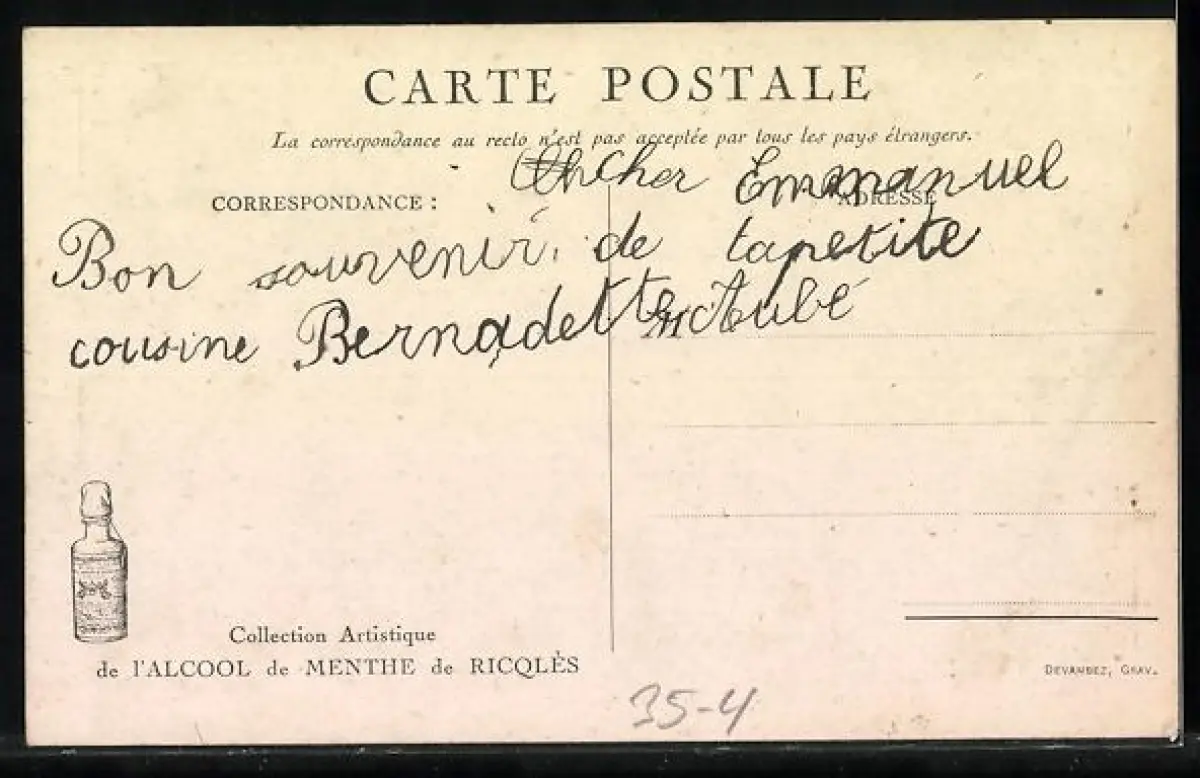 CARTE POSTALE
La correspondance au recto n'est pas acceptée par tous les pays étrangers.
cher Emmanuel
CORRESPONDANCE :
ADRESSE
Bon souvenir. de tapetite
cousine Bernadette Aubé
Collection Artistique
de l'ALCOOL de MENTHE de RICQLÈS
DEVAMBEZ, GRAV.
35-4